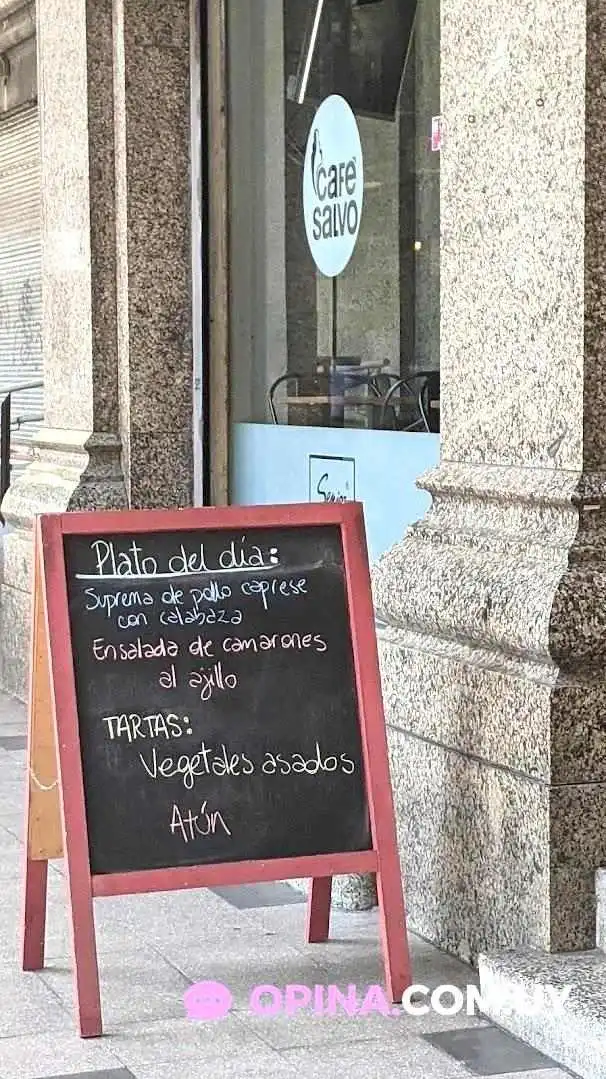 CAFÉ
SALVO
Plato del día:
Suprema de pollo caprese
con calabaza
Ensalada de camarones
al ajillo
TARTAS:
Vegetales asados
Atún
OPINA.COM.UY